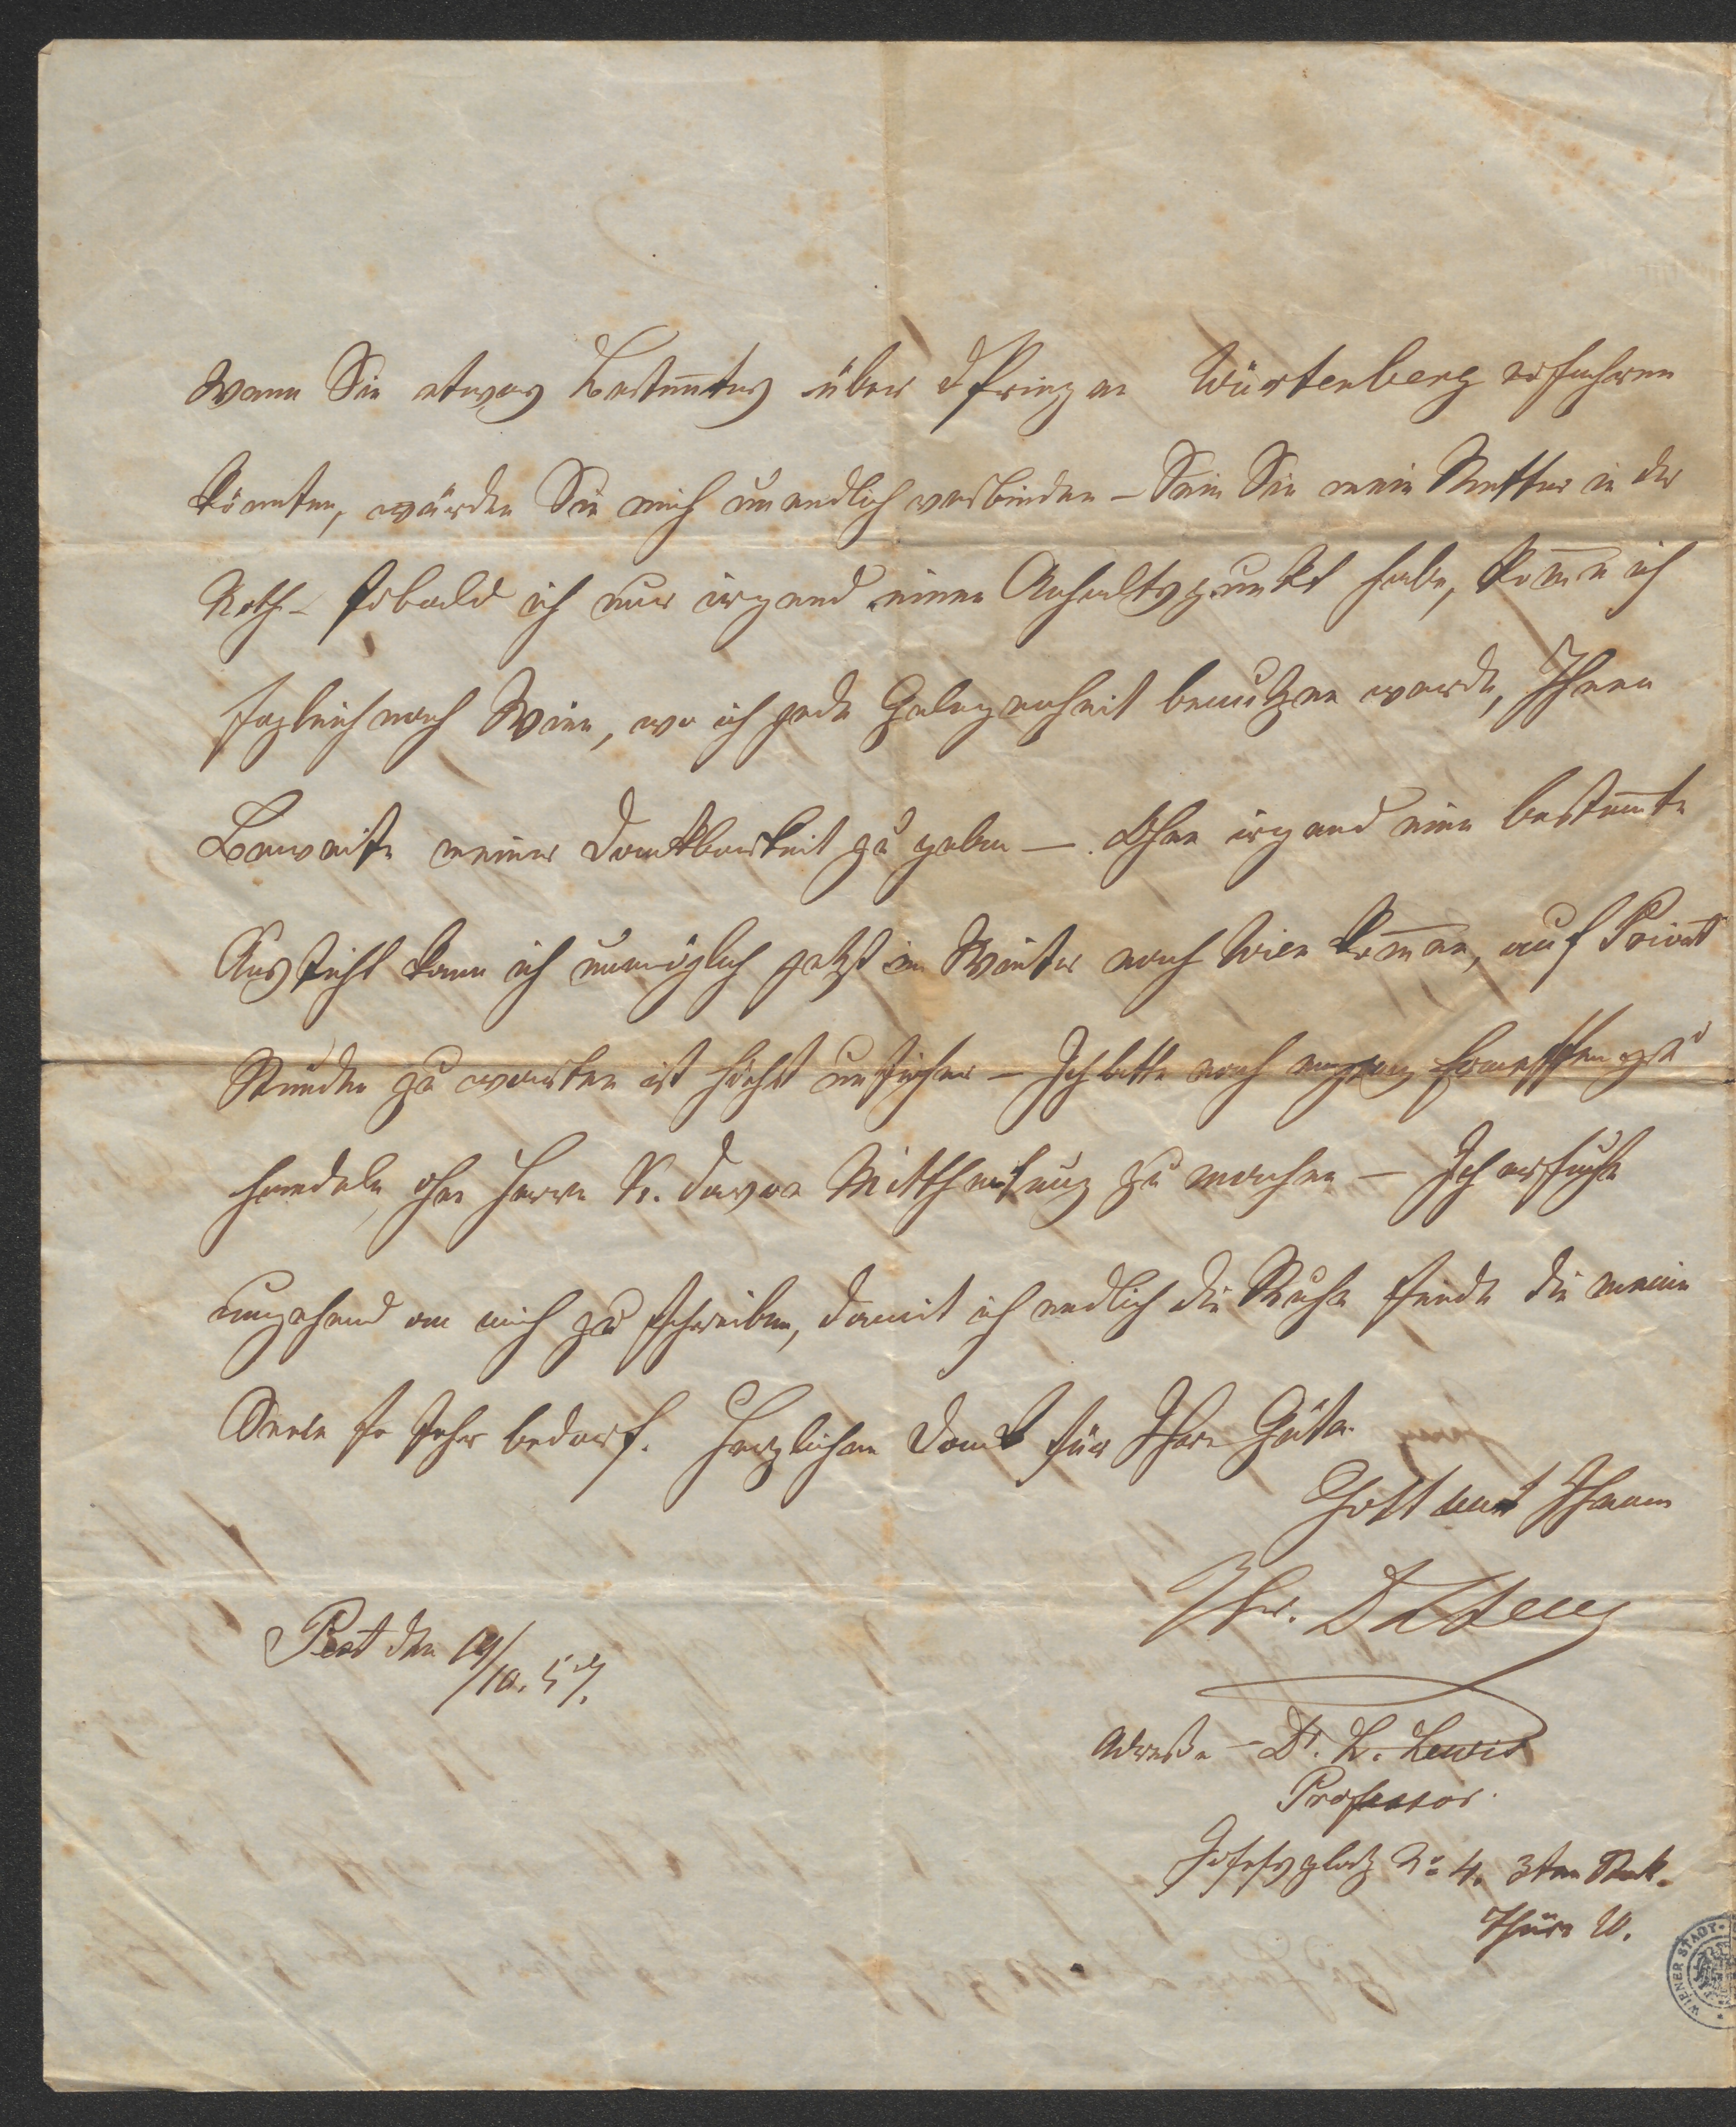 Wenn Sie etwas Bestim̅tes über d Prinzen Würtenberg erfahren
könnten, würden Sie mich unendlich verbinden – Sein Sie mein Retter in der
Noth – sobald ich nur irgend einen Anhaltspunkt habe, kom̅e ich
sogleich nach Wien, wo ich jede Gelegenheit benutzen werde, Ihnen
Beweise meiner Dankbarkeit zu geben –. Ohne irgend eine bestim̅te
Aussicht kann ich unmöglich jetzt im Winter nach Wien kom̅en, auf Privat
Stunden zu warten ist höchst unsicher – Ich bitte nach zu
handeln, ohne Herrn K. davon Mittheilung zu machen – Ich ersuche
umgehend an mich zu schreiben, damit ich endlich die Ruhe finde die meine
Seele so sehr bedarf. Herzlichen Dank für Ihre Güte.
Gott mit Ihnen
Ihr.
Pest den 19/10. 57.
Adresse – Dr. L. Lewis
Professor.
Josefsplatz No 4. 3ten Stock.
Thüre
WIENER STADT-